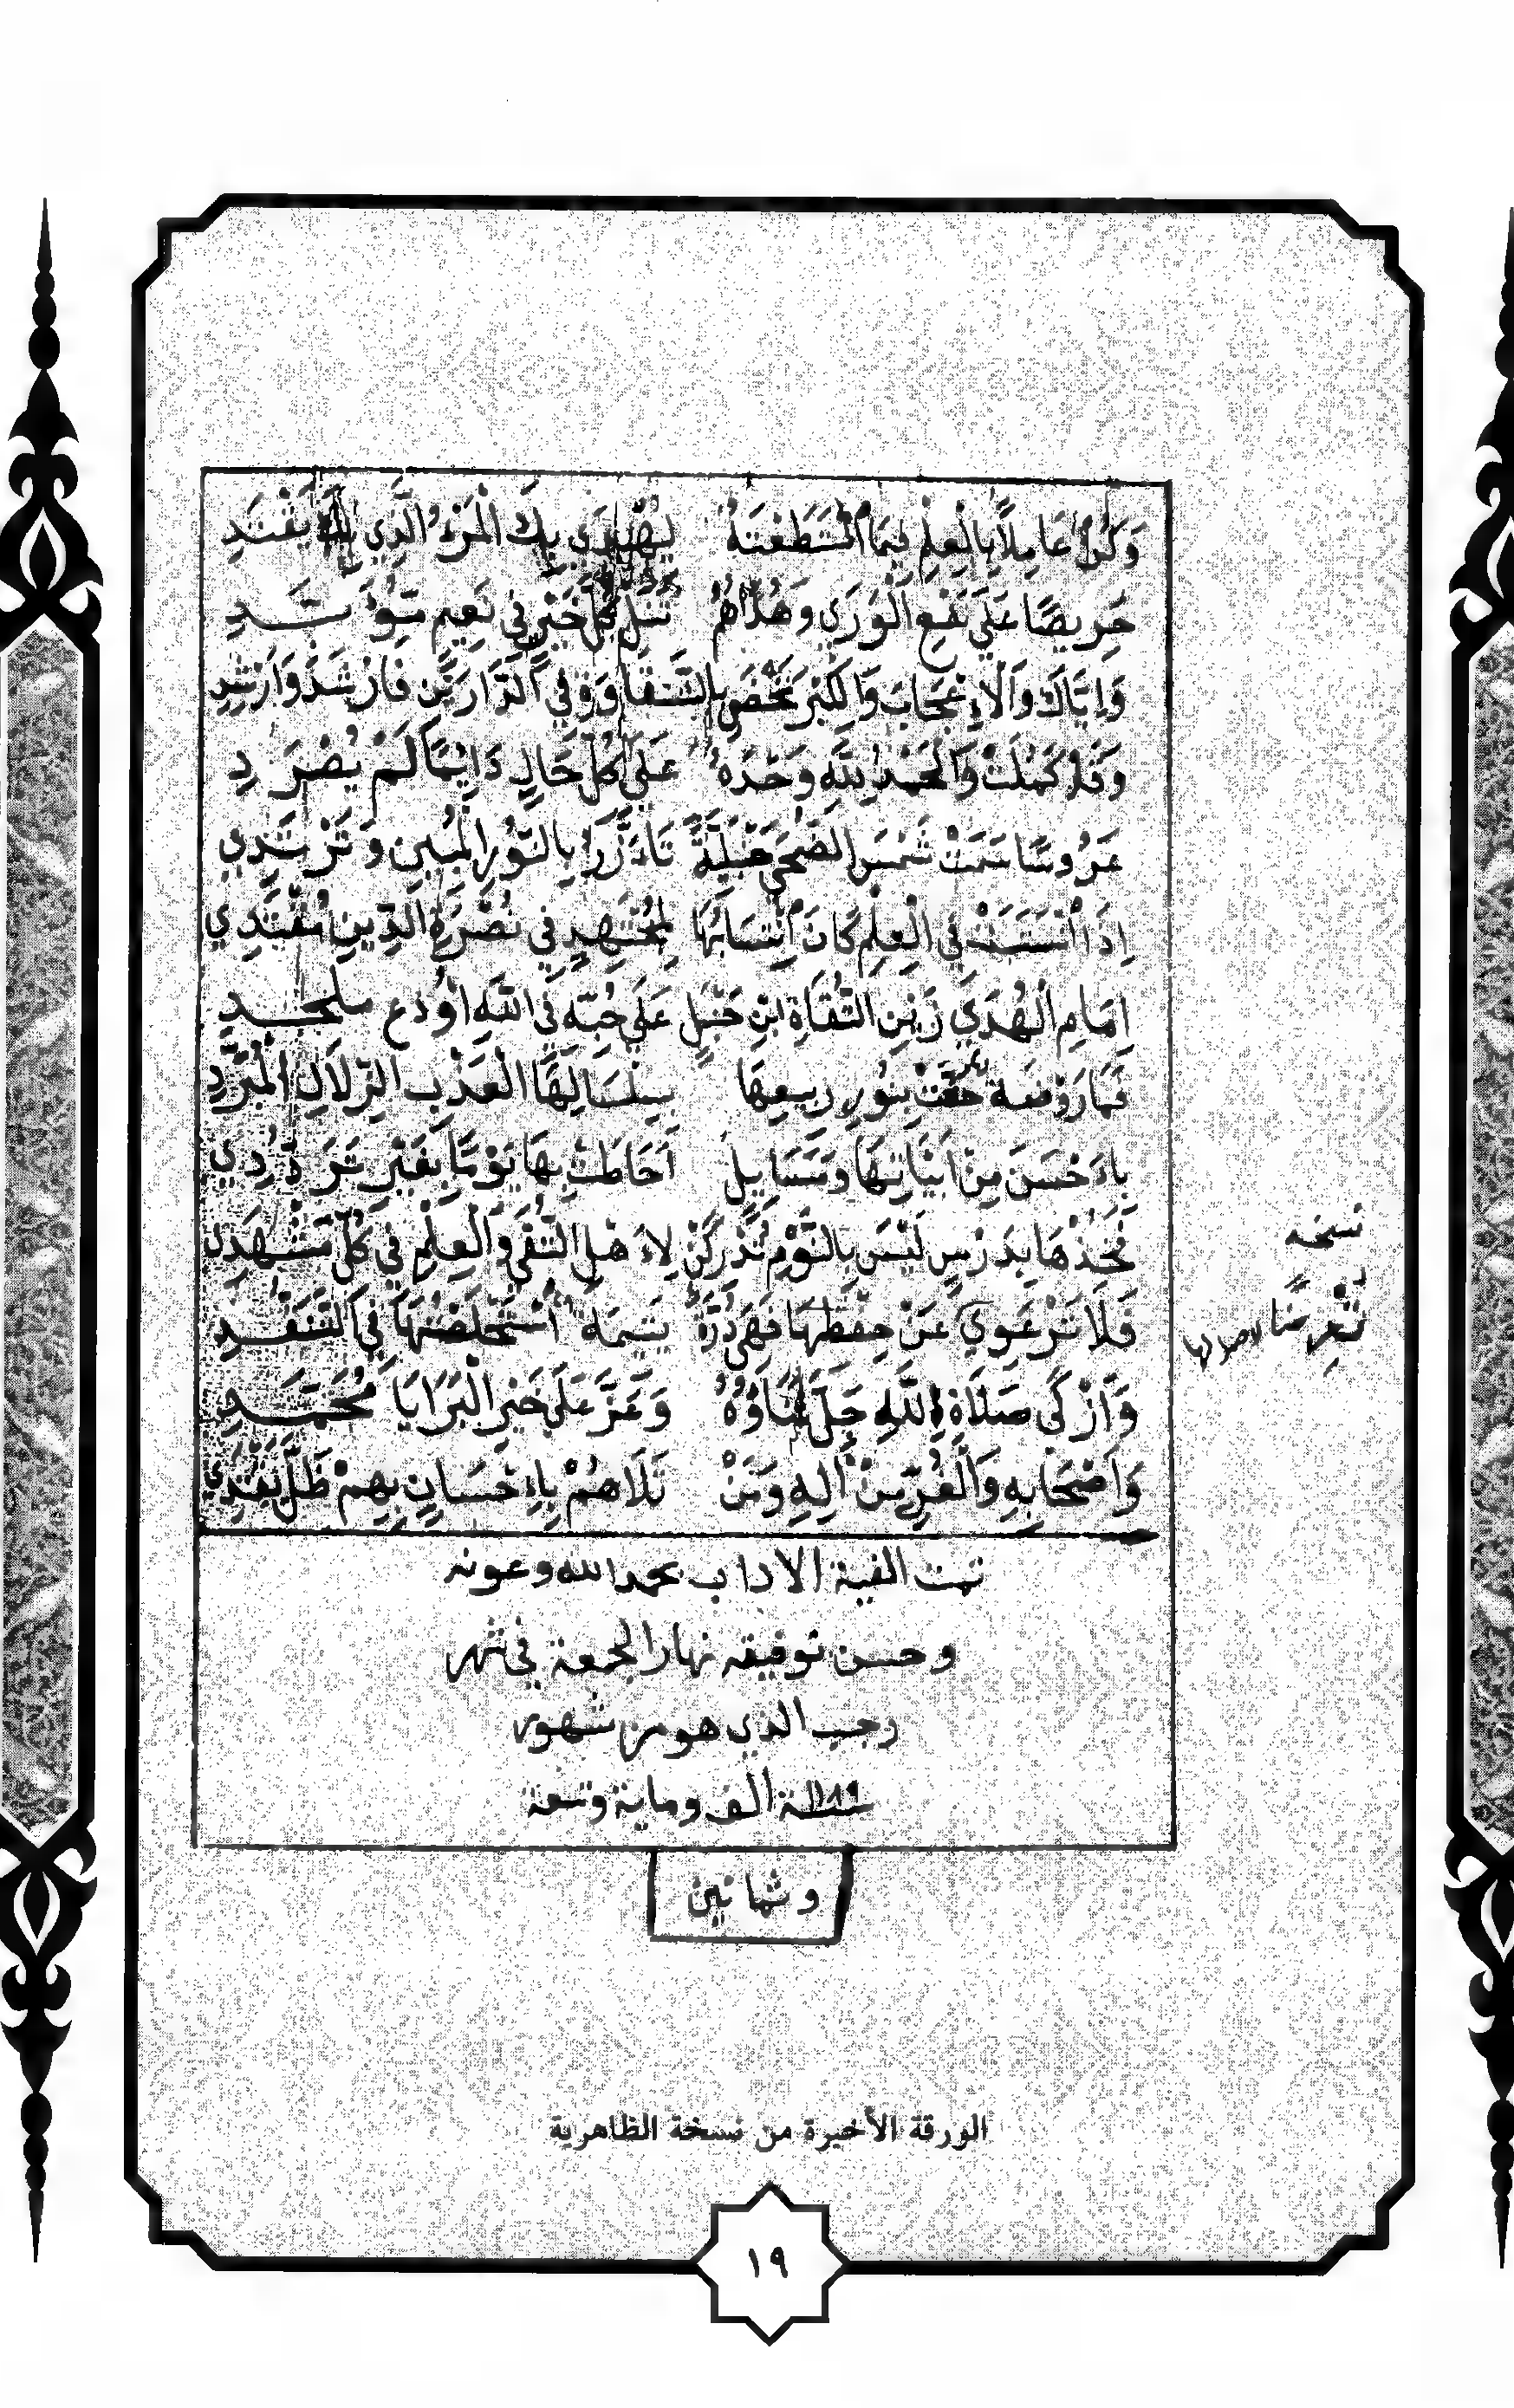 وَكُنْ عَامِلًا بِالْعِلْمِ فِيمَا اسْتَطَعْتَهُ لِيُهْدَى بِكَ الْمَرْءُ الَّذِي بِكَ يَقْتَدِ
حَرِيصًا عَلَى نَفْعِ الْوَرَى وَهُدَاهُمُ تَنَلْ كُلَّ خَيْرٍ فِي نَعِيمٍ مُؤَبَّدِ
وَإِيَّاكَ وَالْإِعْجَابَ وَالْكِبْرَ تَحْظَ بِالسَّعَادَةِ فِي الدَّارَيْنِ فَارْشُدْ وَأَرْشِدِ
وَقَدْ كَمُلَتْ وَالْحَمْدُ لِلَّهِ وَحْدَهُ عَلَى كُلِّ حَالٍ دَائِمًا لَمْ يُصَرَّدِ
عَرُوسًا سَمَتْ شَمْسَ الضُّحَى حَنْبَلِيَّةً تَأَزَّرُ بِالنُّورِ الْمُبِينِ وَتَرْتَدِي
إِذَا انْتَسَبَتْ فِي الْعِلْمِ كَانَ انْتِسَابُهَا لِمُجْتَهِدٍ فِي نُصْرَةِ الدِّينِ مُقْتَدِي
إِمَامِ الْهُدَى زَيْنِ التُّقَاةِ ابْنِ حَنْبَلٍ عَلَى حُبِّهِ فِي اللَّهِ أُودَعُ مُلْحَدِ
فَمَا رَوْضَةٌ حُفَّتْ بِنَوْرِ رَبِيعِهَا بِسِلْسَالِهَا الْعَذْبِ الزُّلَالِ الْمُبَرَّدِ
بِأَحْسَنَ مِنْ أَبْيَاتِهَا وَمَسَايِلَ أَحَاطَتْ بِهَا يَوْمًا بِغَيْرِ تَرَدُّدِي
فَخُذْهَا بِدَرْسٍ لَيْسَ بِالنَّوْمِ تُدْرِكَنْ لِأَهْلِ التُّقَى وَالْعِلْمِ فِي كُلِّ مَشْهَدِ
فَلَا تَرْعَوِي عَنْ حِفْظِهَا فَهْيَ دُرَّةٌ يَتِيمَةٌ اسْتَخْلَصْتُهَا فِي التَّنَقُّدِ
وَأَزْكَى صَلَاةِ اللَّهِ جَلَّ ثَنَاؤُهُ وَعَزَّ عَلَى خَيْرِ الْبَرَايَا مُحَمَّدِ
وَأَصْحَابِهِ وَالْغُرِّ مِنْ آلِهِ وَمَنْ تَلَاهُمْ بِإِحْسَانٍ بِهِمْ ظَلَّ يَقْتَدِي
نسخه
تمت الفية الاداب بحمد الله وعونه
وحسن توفيقه نهار الجمعة في شهر
رجب الذي هو من شهور
سنة ١١٨٩ الف وماية وتسعة
وثمانين
الورقة الأخيرة من نسخة الظاهرية
١٩